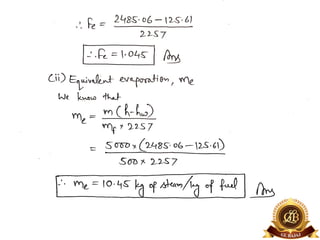 ∴ Fe = 2485.06 – 125.61
2257
∴ Fe = 1.045 Ans
(ii) Equivalent evaporation, me
We know that
me = m (h-hw)
mf × 2257
= 5000 × (2485.06 – 125.61)
500 × 2257
∴ me = 10.45 kg of steam/kg of fuel Ans